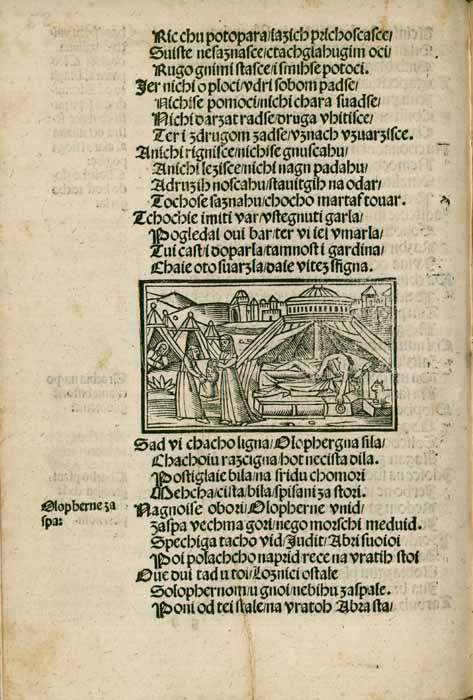 Ric chu potopara/iazich prichoscasce/
Suiste nesaznasce/ctachgiahugim oci/
Rugo gnimi stasce/i smihse potoci.
Jer nichi o ploci/vdri sobom padse/
Nichise pomoci/nichi chara suadse/
Nichi darzat radse/druga vhitisce/
Ter i zdrugom zadse/vznach vzuarzisce.
Anichi rignisce/nichise gnuscahu/
Anichi lezisce/nichi nagn padahu/
Adruzih noscahu/stauitgih na odar/
Tochose saznahu/chocho martaf touar.
Tchochie imiti var/vstegnuti garla/
Pogledai oui bar/ter vi iei vmarla/
Tui cast/i doparla/tamnost i gardina/
Chaie oto suarzla/daie vitez sfigna.
Sad vi chacho ligna/Olophergna sila/
Chachoiu razcigna/hot necista dila.
Postiglaie bila/na sridu chomori
Mehcha/cista/bila/spisani za stori.
Olopherne za
spa:
Nagnoise obori/Olopherne vnid/
zaspa vechma gori/nego morschi meduid.
Spechiga tacho vid/Judit/Abri suoioi
Poi polachcho naprid rece na vratih stoi
Oue dui tad u toi/Loznici ostale
Solophernom/u gnoi/nebihu zaspale.
Poni od tei stale/na vratoh Abra sta/